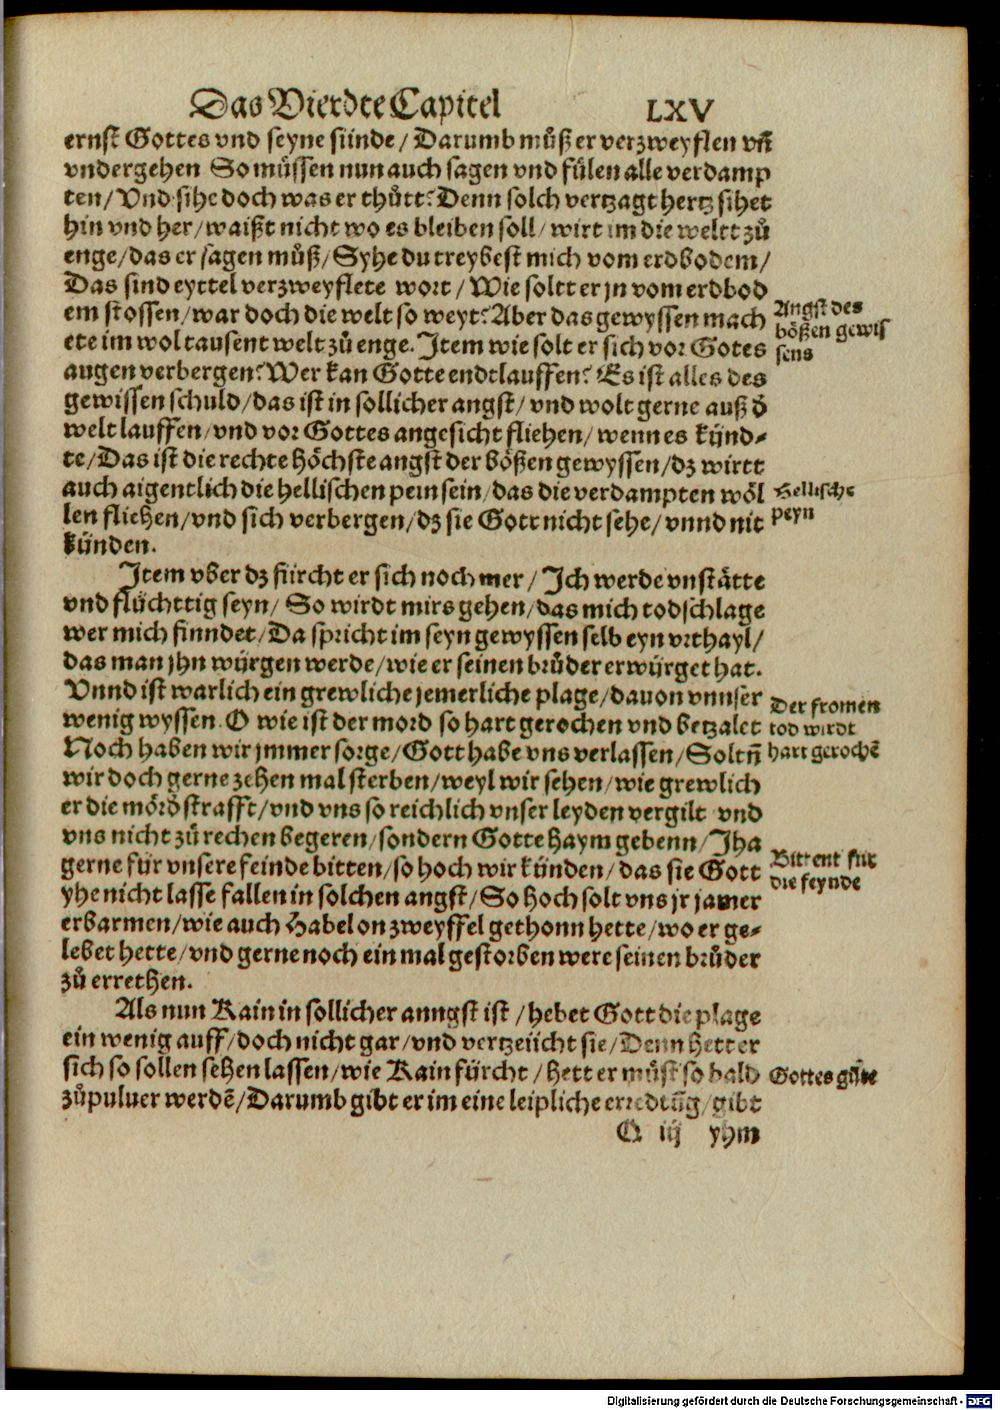 Das Vierdte Capitel LXV
ernſt Gottes vnd ſeyne ſünde / Darumb muͤß er verzweyflen vñ
vndergehen So muͤſſen nun auch ſagen vnd fuͤlen alle verdamp
ten / Vnd ſihe doch was er thuͤtt? Denn ſolch vertzagt hertz ſihet
hin vnd her / waißt nicht wo es bleiben ſoll / wirt im die weltt zuͦ
enge / das er ſagen muͤß / Syhe du treybeſt mich vom erdbodem /
Das ſind eyttel verzweyflete wort / Wie ſoltt er jn vom erdbod
em ſtoſſen / war doch die welt ſo weyt? Aber das gewyſſen mach
Angſt des
bößen gewiſ
ſens
ete im wol tauſent welt zuͦ enge. Item wie ſolt er ſich vor Gotes
augen verbergen? Wer kan Gotte endtlauffen? Es iſt alles des
gewiſſen ſchuld / das iſt in ſollicher angſt / vnd wolt gerne auß d̄
welt lauffen / vnd vor Gottes angeſicht fliehen / wenn es künd-
te / Das iſt die rechte hoͤchſte angſt der boͤßen gewyſſen / dz wirtt
auch aigentlich die helliſchen pein ſein / das die verdampten woͤl
Helliſche
peyn
len fliehen / vnd ſich verbergen / dz ſie Gott nicht ſehe / vnnd nit
künden.
Item vber dz fürcht er ſich noch mer / Ich werde vnſtaͤtte
vnd fluͤchttig ſeyn / So wirdt mirs gehen / das mich todſchlage
wer mich finndet / Da ſpricht im ſeyn gewyſſen ſelb eyn vrthayl /
das man jhn würgen werde / wie er ſeinen bruͤder erwürget hat.
Vnnd iſt warlich ein grewliche jemerliche plage / dauon vnnſer
wenig wyſſen. O wie iſt der mord ſo hart gerochen vnd betzalet
Der fromen
tod wirdt
hart gerochẽ
Noch haben wir jmmer ſorge / Gott habe vns verlaſſen / Soltñ
wir doch gerne zehen mal ſterben / weyl wir ſehen / wie grewlich
er die moͤrd̄ ſtrafft / vnd vns ſo reichlich vnſer leyden vergilt vnd
vns nicht zuͦ rechen begeren / ſondern Gotte haym gebenn / Jha
gerne für vnſere feinde bitten / ſo hoch wir künden / das ſie Gott
Bittent für
die feynde
yhe nicht laſſe fallen in ſolchen angſt / So hoch ſolt vns jr jamer
erbarmen / wie auch Habel on zweyffel gethonn hette / wo er ge-
lebet hette / vnd gerne noch ein mal geſtorben were ſeinen bruͤder
zuͦ errethen.
Als nun Kain in ſollicher anngſt iſt / hebet Gott die plage
ein wenig auff / doch nicht gar / vnd vertzeücht ſie / Denn hett er
ſich ſo ſollen ſehen laſſen / wie Kain fürcht / hett er muͤſt ſo bald
Gottes güte
zuͦ puluer werdẽ / Darumb gibt er im eine leipliche erredtũg / gibt
O iij yhm
Digitalisierung gefördert durch die Deutsche Forschungsgemeinschaft - DFG